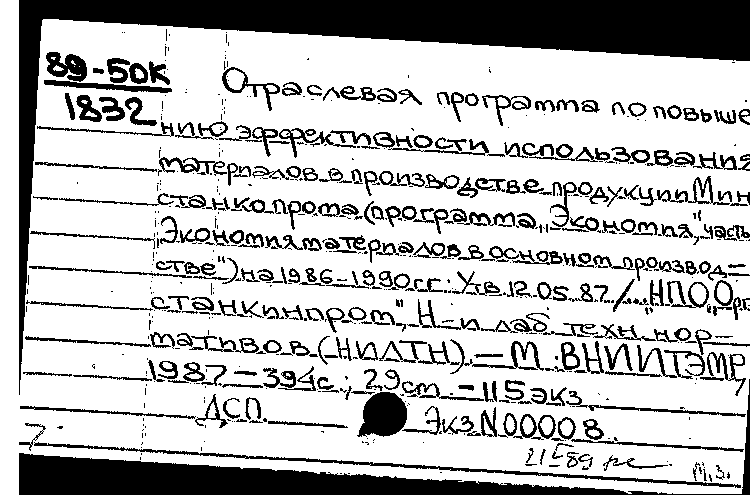 89-50К
1832
Отраслевая программа по повыше
нию эффективности использования
материалов в производстве продукции Мин
станкопрома (программа „Экономия", часть
„Экономия материалов в основном производ-
стве") на 1986-1990 гг. Утв. 12.05.87/... „НПО „Орг
станкинпром", Н-и лаб. техн. нор-
мативов (НИЛТН). — М.: ВНИИТЭМР,
1987 — 394с.; 29см. — 115 экз.
ДСП. Экз N 00008.
89
М.З.